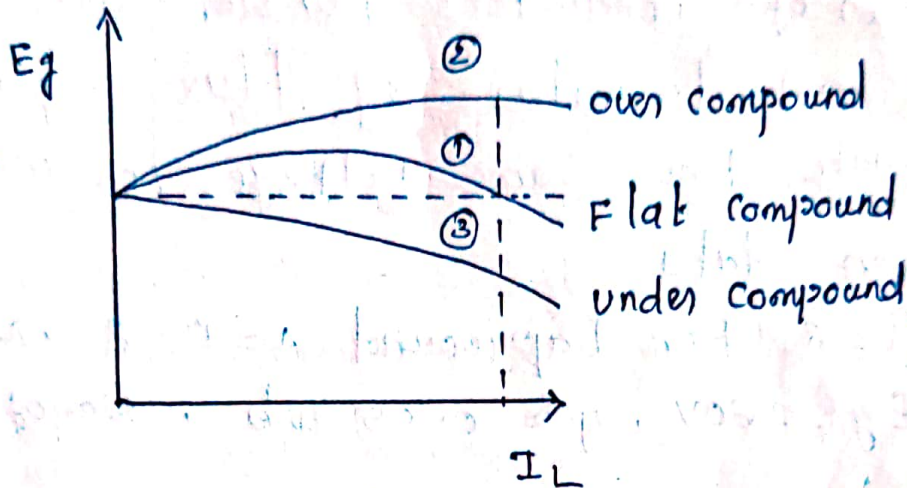 Eg
②
over compound
①
Flat compound
③
under compound
IL